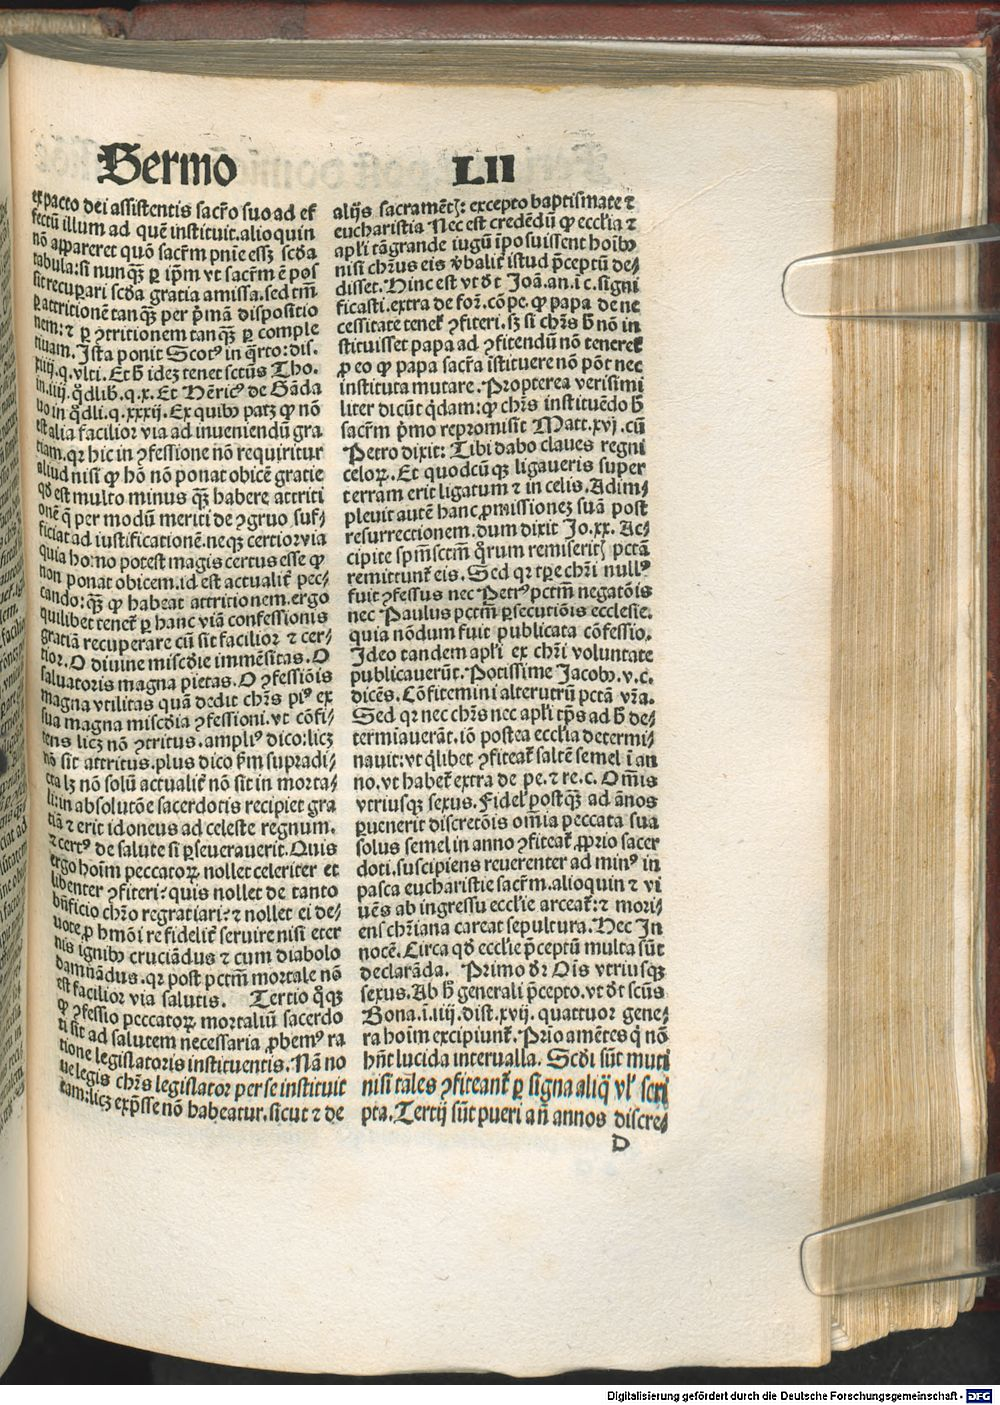 Sermo LII
ex pacto dei assistentis sacr̃o suo ad ef
fectū illum ad quē instituit. alioquin
nō appareret quō sacr̃m pnie essꝫ scd̃a
tabula: si nunqꝫ ꝑ ip̄m vt sacr̃m ē pos
sit recuperari scd̃a gratia amissa. sed tm̄
ꝑ attritionē tanqꝫ per p̄mā dispositio
nem: ⁊ ꝑ ꝯtritionem tanqꝫ ꝑ comple
tiuam. Ista ponit Scotꝰ in q̄rto: dis.
xiiij. q. vlti. Et h̄ idez tenet sctūs Tho.
in. iiij. q̄dlib̄. q. x. Et Hēricꝰ de Gāda
uo in q̄dli. q. xxxij. Ex quibꝰ patꝫ ꝙ nō
est alia facilior via ad inueniendū gra
tiam. qꝛ hic in ꝯfessione nō requiritur
aliud nisi ꝙ hō nō ponat obicē gratie
qd̄ est multo minus qꝫ habere attriti
onē q̄ per modū meriti de ꝯgruo suf⸗
ficiat ad iustificationē. neqꝫ certior via
quia homo potest magis certus esse ꝙ
non ponat obicem. id est actualit̄ pec⸗
cando: qꝫ ꝙ habeat attritionem. ergo
quilibet tenet̄ ꝑ hanc viā confessionis
gratiā recuperare cū sit facilior ⁊ cer⸗
tior. O diuine miscd̄ie immēsitas. O
saluatoris magna pietas. O ꝯfessiōis
magna vtilitas quā dedit chr̄s piꝰ ex
sua magna miscd̄ia ꝯfessioni. vt cōfi⸗
tens licꝫ nō ꝯtritus. ampliꝰ dico: licꝫ
nō sit attritus. plus dico h̄m supradi⸗
cta lꝫ nō solū actualit̄ nō sit in morta⸗
li: in absolutōe sacerdotis recipiet gra
tiā ⁊ erit idoneus ad celeste regnum.
⁊ certꝰ de salute si ꝑseuerauerit. Quis
ergo hoīm peccatoꝝ nollet celeriter et
libenter ꝯfiteri: quis nollet de tanto
bn̄ficio chr̄o regratiari: ⁊ nollet ei de⸗
uote ꝓ hmōi re fidelit̄ seruire nisi eter
nis ignibꝰ cruciādus ⁊ cum diabolo
damnādus. qꝛ post pctm̄ mortale nō
est facilior via salutis. Tertio q̄qꝫ
ꝙ ꝯfessio peccatoꝝ mortaliū sacerdo
ti sit ad salutem necessaria ꝓbemꝰ ra
tione legislatoris instituentis. Nā no
ue legis chr̄s legislator per se instituit
eam: licꝫ exp̄sse nō habeatur. sicut ⁊ de
alijs sacramēt̄: excepto baptismate ⁊
eucharistia Nec est credēdū ꝙ ecclīa ⁊
apl̄i tā grande iugū īposuissent hoībꝰ
nisi chr̄us eis v̄balit̄ istud p̄ceptū de⸗
disset. Hinc est vt dt̄ Joā. an. ī c. signi
ficasti. extra de foꝝ. cōpe. ꝙ papa de ne
cessitate tenet̄ ꝯfiteri. sꝫ si chr̄s h̄ nō in
stituisset papa ad ꝯfitendū nō teneret̄
ꝓ eo ꝙ papa sacr̄a īstituere nō pōt nec
instituta mutare. Propterea verisimi
liter dicūt q̄dam: ꝙ chr̄s instituēdo h̄
sacr̄m p̄mo repromisit Matt. xvj. cū
Petro dixit: Tibi dabo claues regni
celoꝝ. Et quodcūqꝫ ligaueris super
terram erit ligatum ⁊ in celis. Adim⸗
pleuit autē hanc ꝓmissionez suā post
resurrectionem. dum dixit Jo. xx. Ac⸗
cipite sp̄m sctm̄ q̄rum remiserit̄ pctā
remittunt̄ eis. Sed qꝛ tp̄e chr̄i nullꝰ
fuit ꝯfessus nec Petrꝰ pctm̄ negatōis
nec Paulus pctm̄ ꝑsecutiōis ecclesie.
quia nōdum fuit publicata cōfessio.
Ideo tandem apl̄i ex chr̄i voluntate
publicauerūt. Potissime Jacobꝰ. v. c.
dicēs. Cōfitemini alterutrū pctā vr̄a.
Sed qꝛ nec chr̄s nec apl̄i tp̄s ad h̄ de⸗
termiauerāt. iō postea ecclīa determi⸗
nauit: vt q̄libet ꝯfiteat̄ saltē semel ī an
no. vt habet̄ extra de pe. ⁊ re. c. Om̄is
vtriusqꝫ sexus. Fidel̄ postqꝫ ad ānos
ꝑuenerit discretōis om̄ia peccata sua
solus semel in anno ꝯfiteat̄ ꝓprio sacer
doti. suscipiens reuerenter ad minꝰ in
pasca eucharistie sacr̄m. alioquin ⁊ vi
uēs ab ingressu eccl̄ie arceat̄: ⁊ mori⸗
ens chr̄iana careat sepultura. Hec In
nocē. Circa qd̄ eccl̄ie p̄ceptū multa sūt
declarāda. Primo dr̄ Oīs vtriusqꝫ
sexus. Ab h̄ generali p̄cepto. vt dt̄ scūs
Bona. ī. iiij. dist. xvij. quattuor gene⸗
ra hoīm excipiunt̄. Prīo amētes q̄ nō
hn̄t lucida interualla. Scd̄i sūt muti
nisi tales ꝯfiteant̄ ꝑ signa aliq̄ vl̄ scri
pta. Tertij sūt pueri an̄ annos discre⸗
D
Digitalisierung gefördert durch die Deutsche Forschungsgemeinschaft - DFG